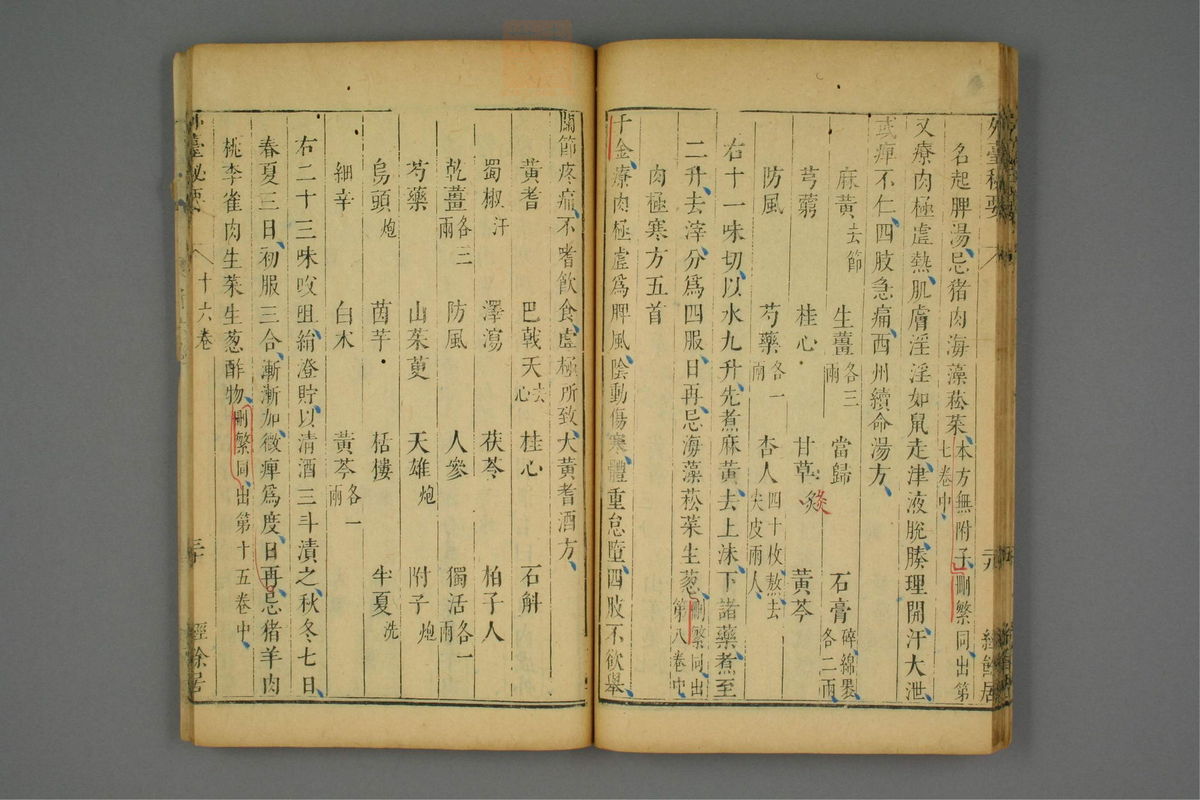 名起脾湯忌猪肉海藻菘菜本方無附子刪繁同出第七卷中
又療肉極虛熱肌膚淫淫如鼠走津液脫腠理開汗大泄
或痺不仁四肢急痛西州續命湯方
麻黃去節 生薑各三兩 當歸 石膏碎綿褁各二兩
芎藭 桂心 甘草炙 黃芩
防風 芍藥各一兩 杏人四十枚熬去尖皮兩人
右十一味切以水九升先煮麻黃去上沫下諸藥煮至
二升去滓分爲四服日再忌海藻菘菜生葱刪繁同出第八卷中
肉極寒方五首
千金療肉極虛爲脾風陰動傷寒體重怠墮四肢不欲舉
關節疼痛不嗜飲食虛極所致大黃耆酒方
黃耆 巴戟天去心 桂心 石斛
蜀椒汗 澤瀉 茯苓 柏子人
乾薑各三兩 防風 人參 獨活各一兩
芍藥 山茱萸 天雄炮 附子炮
烏頭炮 茵芋 栝樓 半夏洗
細辛 白朮 黃芩各一兩
右二十三味㕮咀絹澄貯以清酒三斗漬之秋冬七日
春夏三日初服三合漸漸加微痺爲度日再忌猪羊肉
桃李雀肉生菜生葱酢物刪繁同出第十五卷中
外臺秘要
十六卷
經餘居